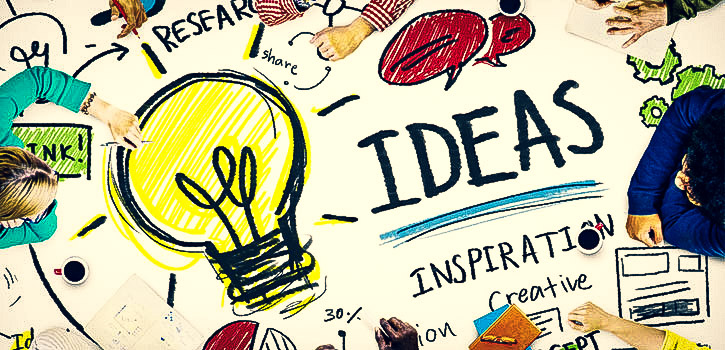 RESEAR
share
INK!
IDEAS
INSPIRATION
Creative
30%
ion
EPT
Id